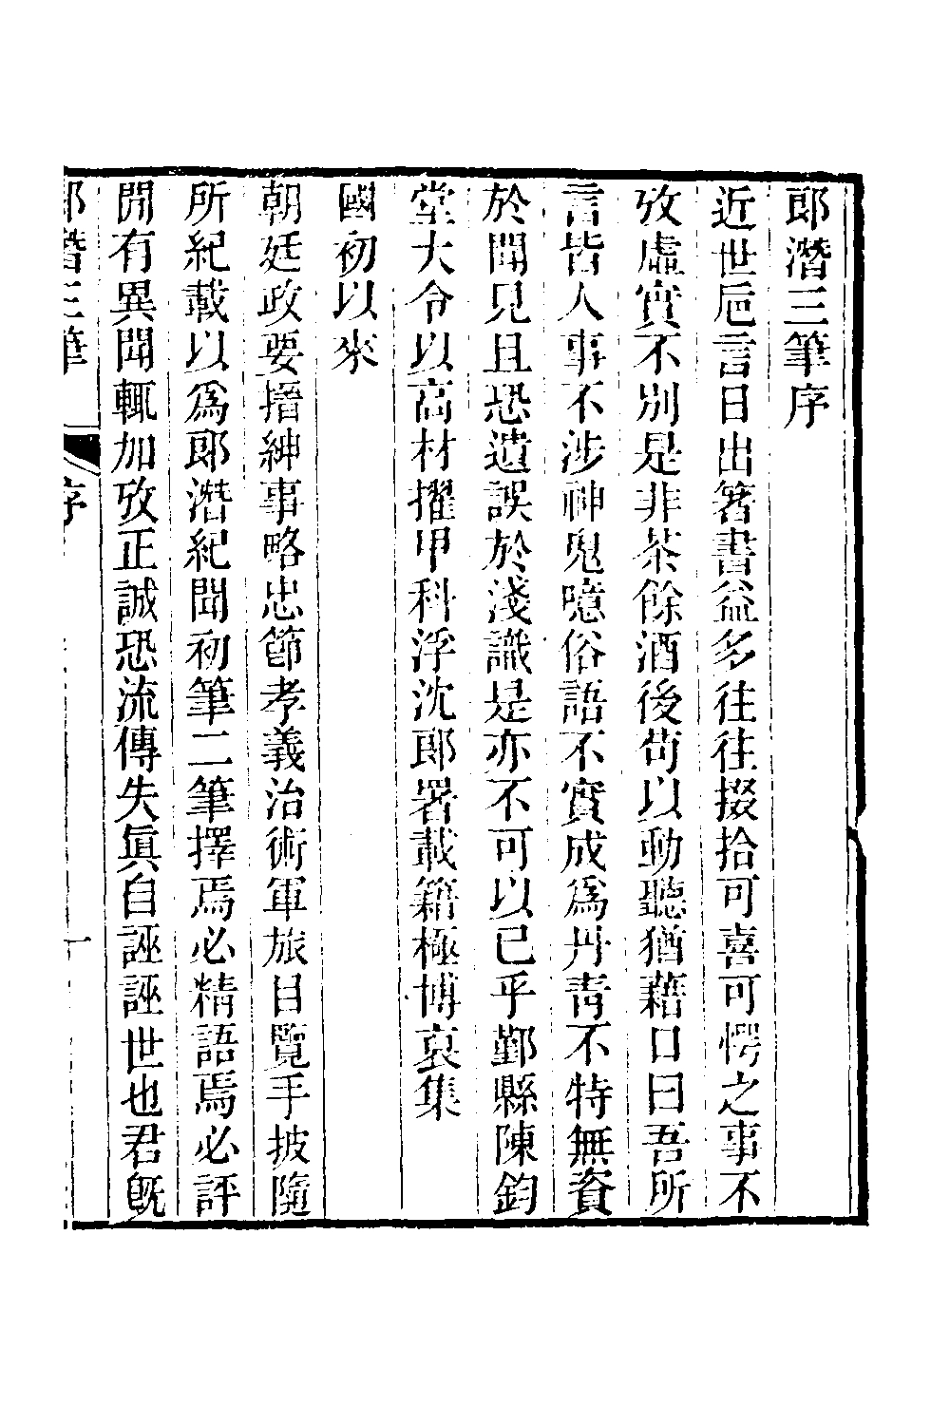 郎潛三筆序
近世巵言日出箸書益多往往掇拾可喜可愕之事不
攷虛實不別是非茶餘酒後苟以動聽猶藉口曰吾所
言皆人事不涉神鬼噫俗語不實成爲丹青不特無資
於聞見且恐遺誤於淺識是亦不可以已乎鄞縣陳鈞
堂大令以高材擢甲科浮沈郎署載籍極博裒集
國初以來
朝廷政要搢紳事略忠節孝義治術軍旅目覽手披隨
所紀載以爲郎潛紀聞初筆二筆擇焉必精語焉必評
閒有異聞輒加攷正誠恐流傳失眞自誣誣世也君旣
郎潛三筆
序
一